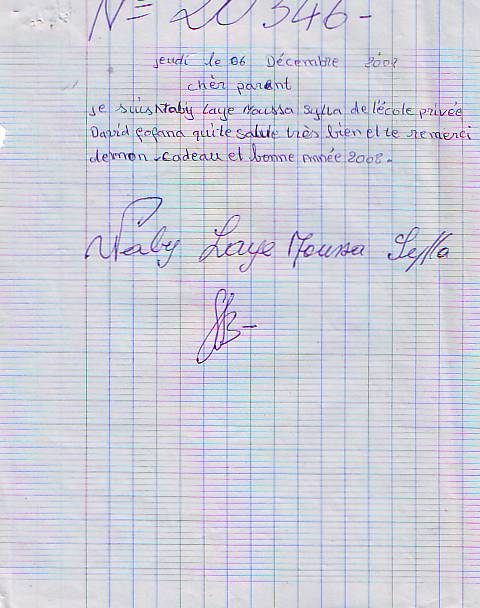 N= 20346-
jeudi le 06 Décembre 2007
chèr parant
je suis Naby Laye Moussa Sylla de l'école privée
David fofana qui te salut très bien et te remerci
de mon cadeau et bonne année 2008.
Naby Laye Moussa Sylla